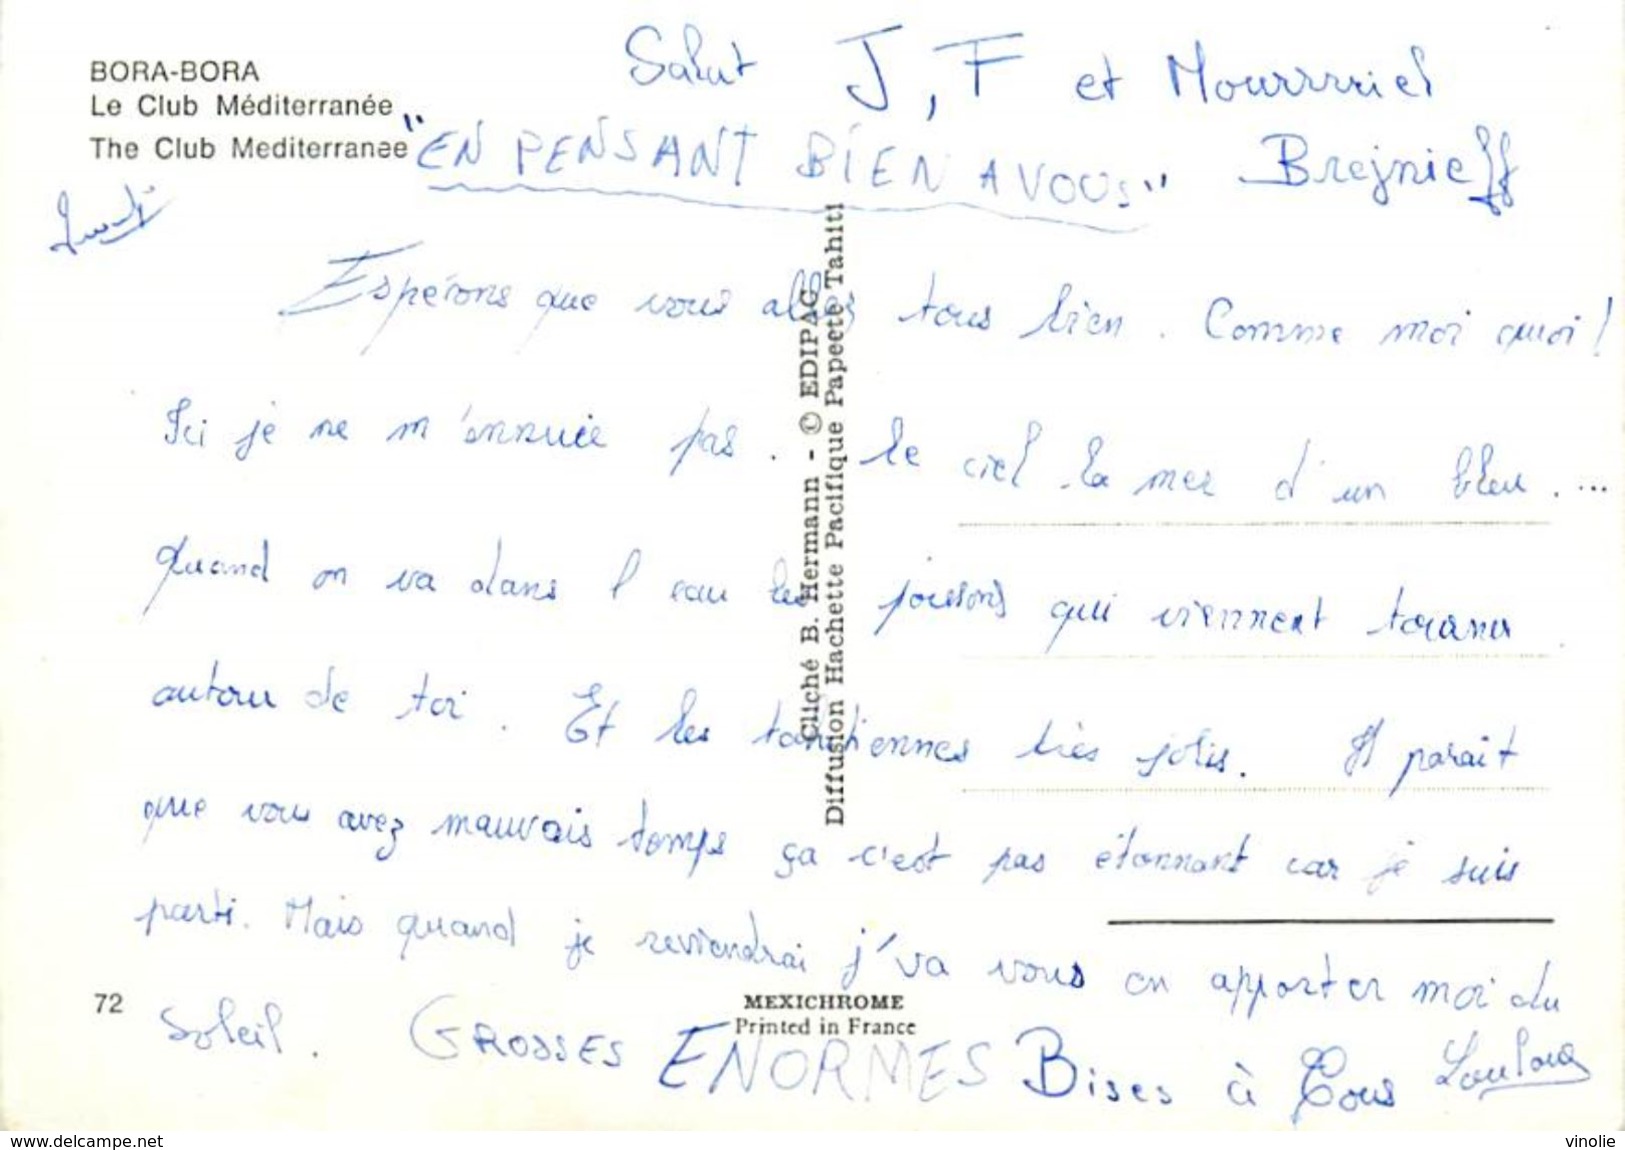 BORA-BORA
Le Club Méditerranée
The Club Mediterranee
Salut J, F et Mourrruiel
"EN PENSANT BIEN A VOUS" Brejnieff
Espérons que vous allez tous bien. Comme moi quoi!
Ici je ne m'ennuie pas. le ciel la mer d'un bleu....
Quand on va dans l eau les poissons qui viennent tourner
autour de toi. Et les tahitiennes très jolis. Il parait
que vous avez mauvais temps ça c'est pas étonnant car je suis
parti. Mais quand je reviendrai j'va vous en apporter moi du
soleil. GROSSES ENORMES Bises à Tous Loulou
Cliché B. Hermann - © EDIPAC
Diffusion Hachette Pacifique Papeete Tahiti
72
MEXICHROME
Printed in France
www.delcampe.net
vinolie